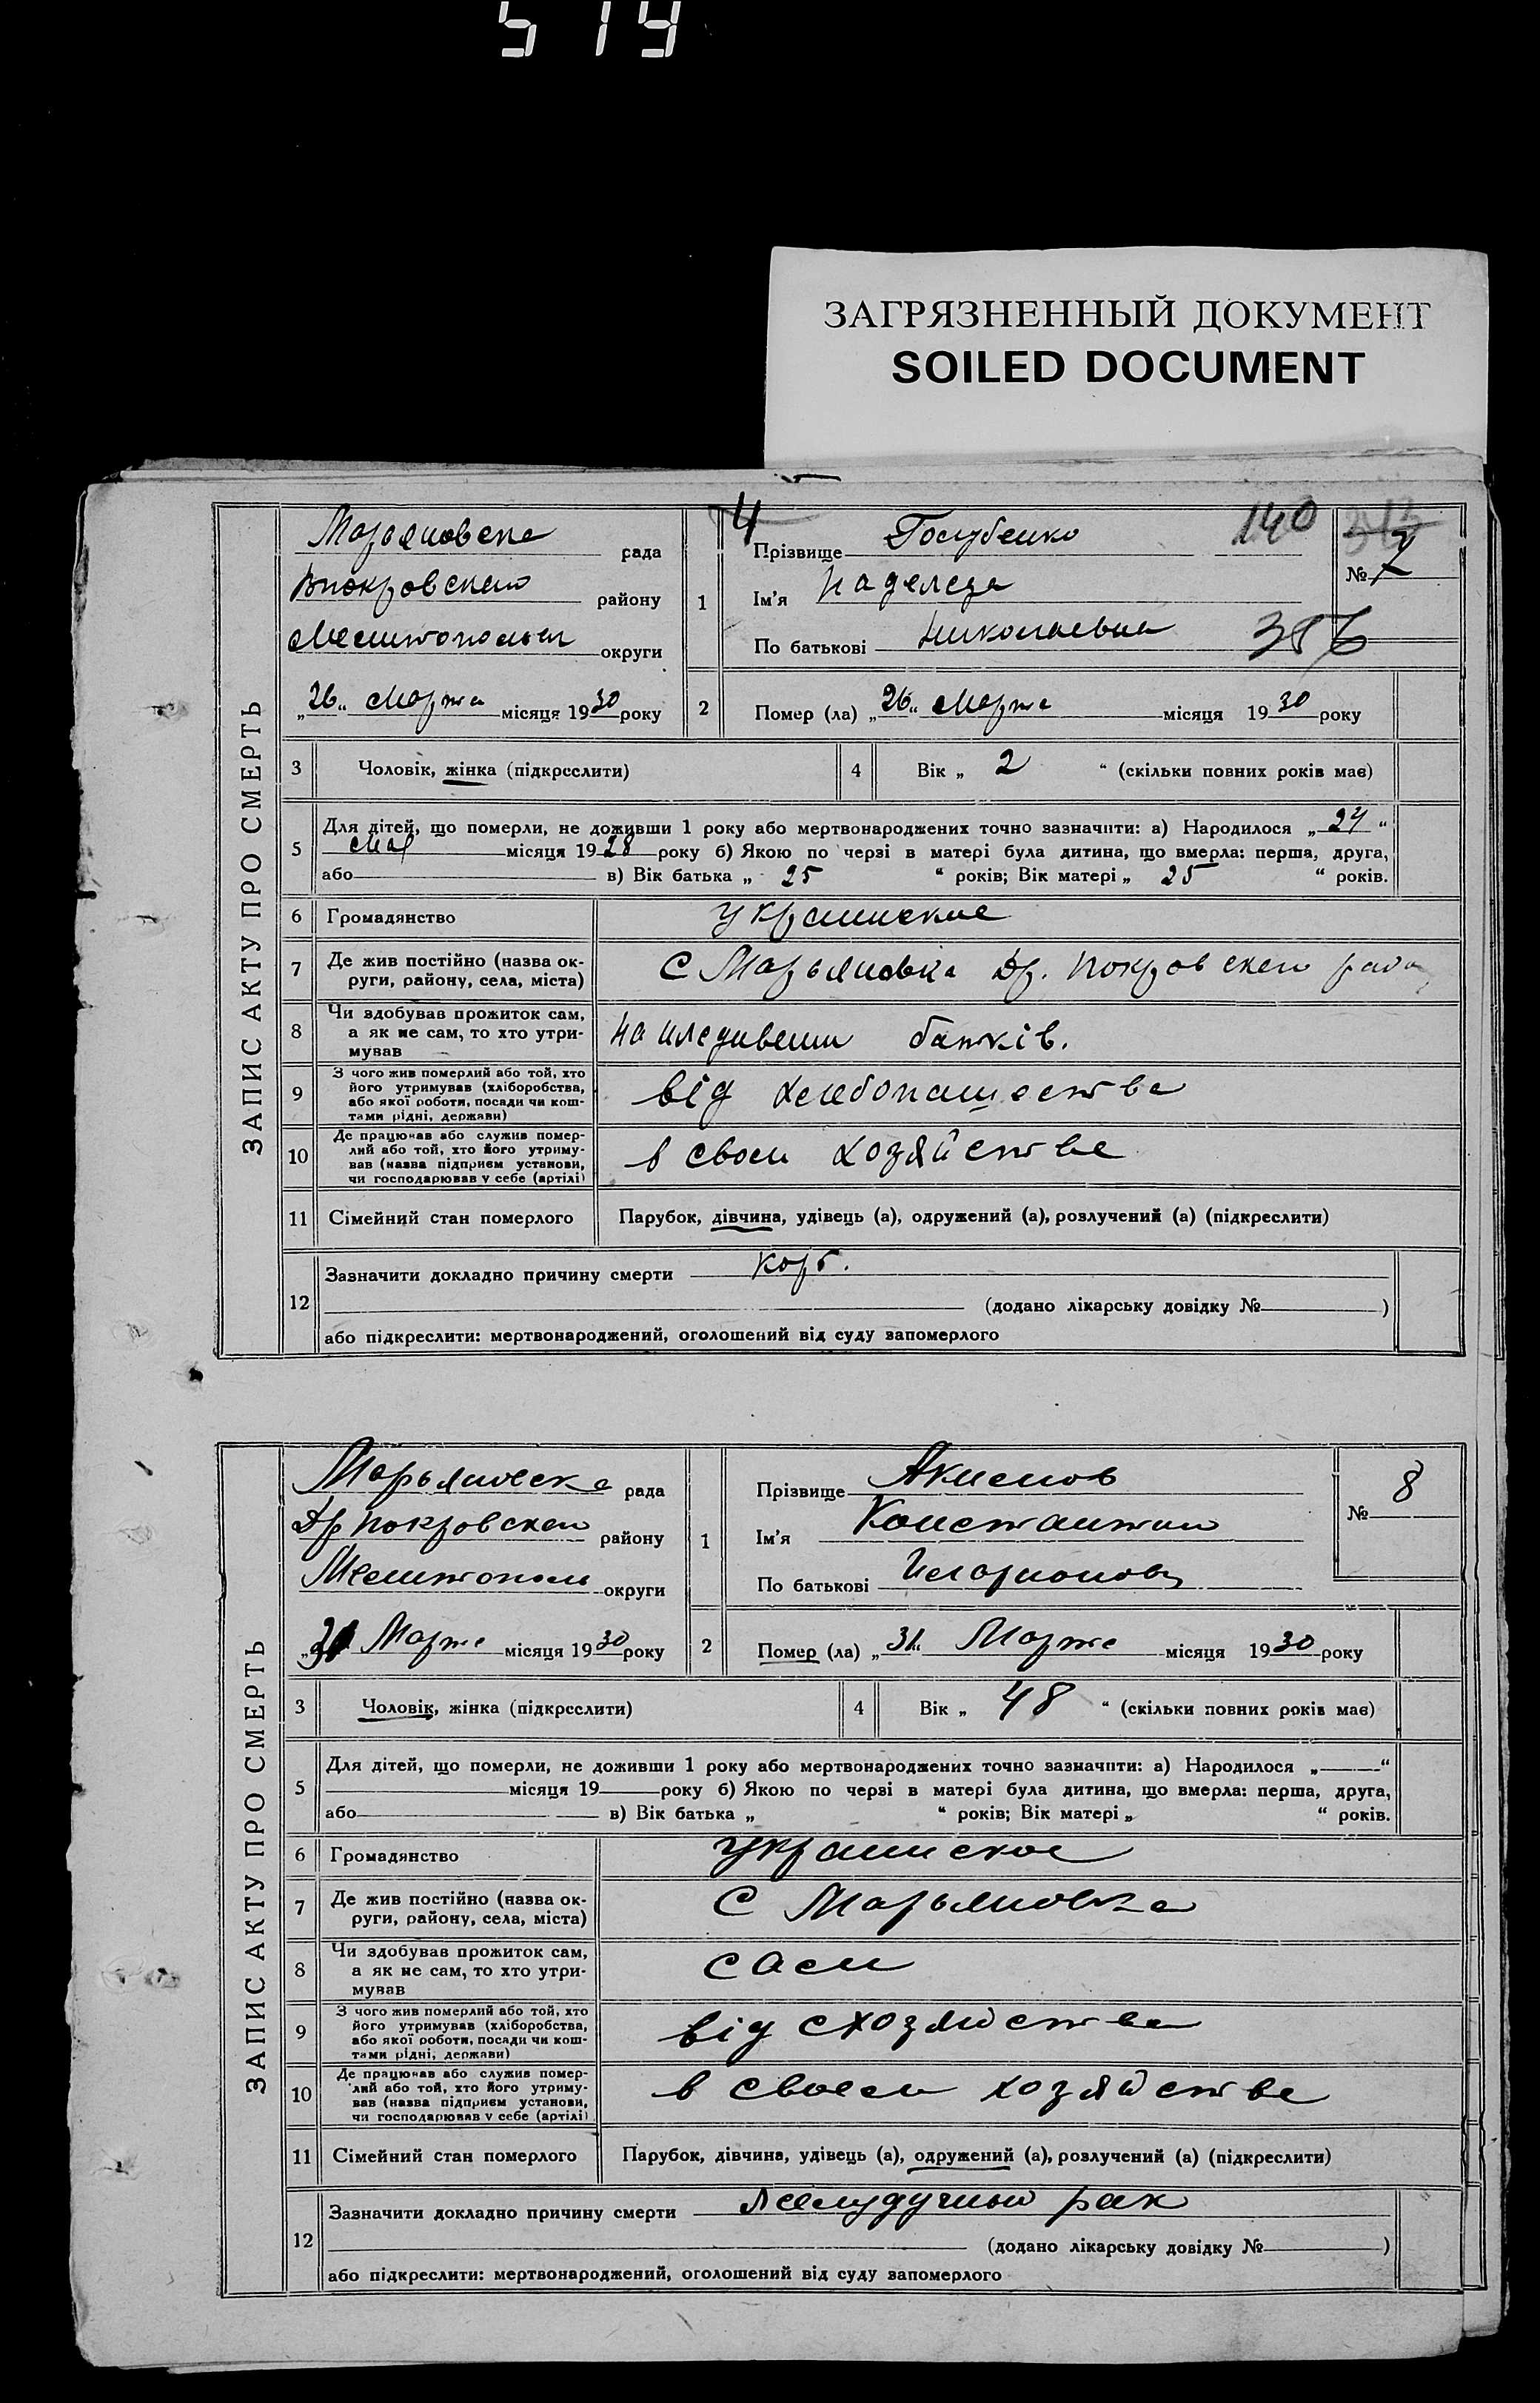 519
ЗАГРЯЗНЕННЫЙ ДОКУМЕНТ
SOILED DOCUMENT
ЗАПИС АКТУ ПРО СМЕРТЬ
Марьяновска рада
Впокровского району
Мелитопольск округи
„26“ Марта місяця 1930 року
4
1 Прізвище Голубенко
140
№ 7
Ім'я Надежда
По батькові Николаевна
386
2 Помер (ла) „26“ Марта місяця 1930 року
3 Чоловік, жінка (підкреслити)
4 Вік „ 2 “ (скільки повних років має)
5 Для дітей, що померли, не доживши 1 року або мертвонароджених точно зазначити: а) Народилося „24“
Мая місяця 1928 року б) Якою по черзі в матері була дитина, що вмерла: перша, друга,
або в) Вік батька „ 25 “ років; Вік матері „ 25 “ років.
6 Громадянство украинское
7 Де жив постійно (назва округи, району, села, міста) С Марьяновка Др. Покровского рада
8 Чи здобував прожиток сам, а як не сам, то хто утримував на иждивении батків.
9 З чого жив померлий або той, хто його утримував (хліборобства, або якої роботи, посади чи коштами рідні, держави) від хлебопашества
10 Де працював або служив померлий або той, хто його утримував (назва підприєм установи, чи господарював у себе (артілі) в своем хозяйстве
11 Сімейний стан померлого Парубок, дівчина, удівець (а), одружений (а), розлучений (а) (підкреслити)
12 Зазначити докладно причину смерти корь.
(додано лікарську довідку № )
або підкреслити: мертвонароджений, оголошений від суду запомерлого
ЗАПИС АКТУ ПРО СМЕРТЬ
Марьяновска рада
Др покровского району
Мелитополь округи
„31 Марта місяця 1930 року
1 Прізвище Акимов
№ 8
Ім'я Константин
По батькові Иларионов
2 Помер (ла) „31“ Марта місяця 1930 року
3 Чоловік, жінка (підкреслити)
4 Вік „ 48 “ (скільки повних років має)
5 Для дітей, що померли, не доживши 1 року або мертвонароджених точно зазначити: а) Народилося „ “
місяця 19 року б) Якою по черзі в матері була дитина, що вмерла: перша, друга,
або в) Вік батька „ “ років; Вік матері „ “ років.
6 Громадянство украинское
7 Де жив постійно (назва округи, району, села, міста) С Марьяновка
8 Чи здобував прожиток сам, а як не сам, то хто утримував сам
9 З чого жив померлий або той, хто його утримував (хліборобства, або якої роботи, посади чи коштами рідні, держави) від схозяйства
10 Де працював або служив померлий або той, хто його утримував (назва підприєм установи, чи господарював у себе (артілі) в своем хозяйстве
11 Сімейний стан померлого Парубок, дівчина, удівець (а), одружений (а), розлучений (а) (підкреслити)
12 Зазначити докладно причину смерти желудучный рак
(додано лікарську довідку № )
або підкреслити: мертвонароджений, оголошений від суду запомерлого